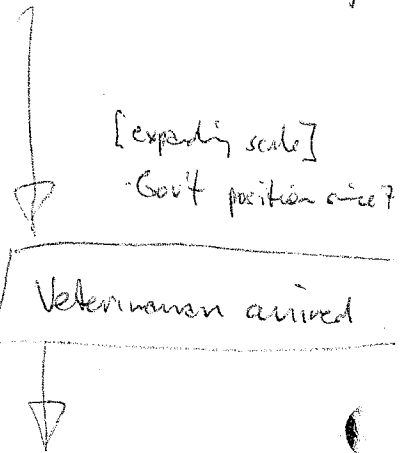 [expanding scale]
-Gov't position since?
Veterinarian arrived